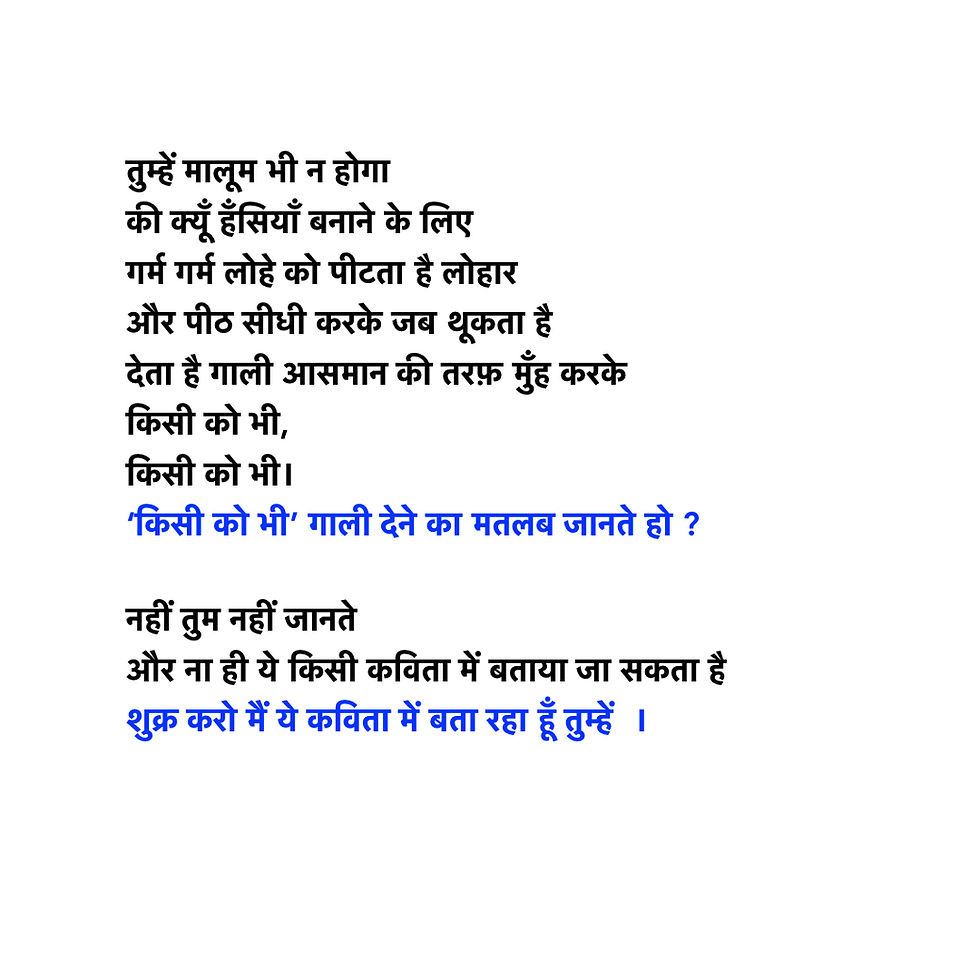 तुम्हें मालूम भी न होगा
की क्यूँ हँसियाँ बनाने के लिए
गर्म गर्म लोहे को पीटता है लोहार
और पीठ सीधी करके जब थूकता है
देता है गाली आसमान की तरफ़ मुँह करके
किसी को भी,
किसी को भी।
‘किसी को भी’ गाली देने का मतलब जानते हो ?
नहीं तुम नहीं जानते
और ना ही ये किसी कविता में बताया जा सकता है
शुक्र करो मैं ये कविता में बता रहा हूँ तुम्हें ।